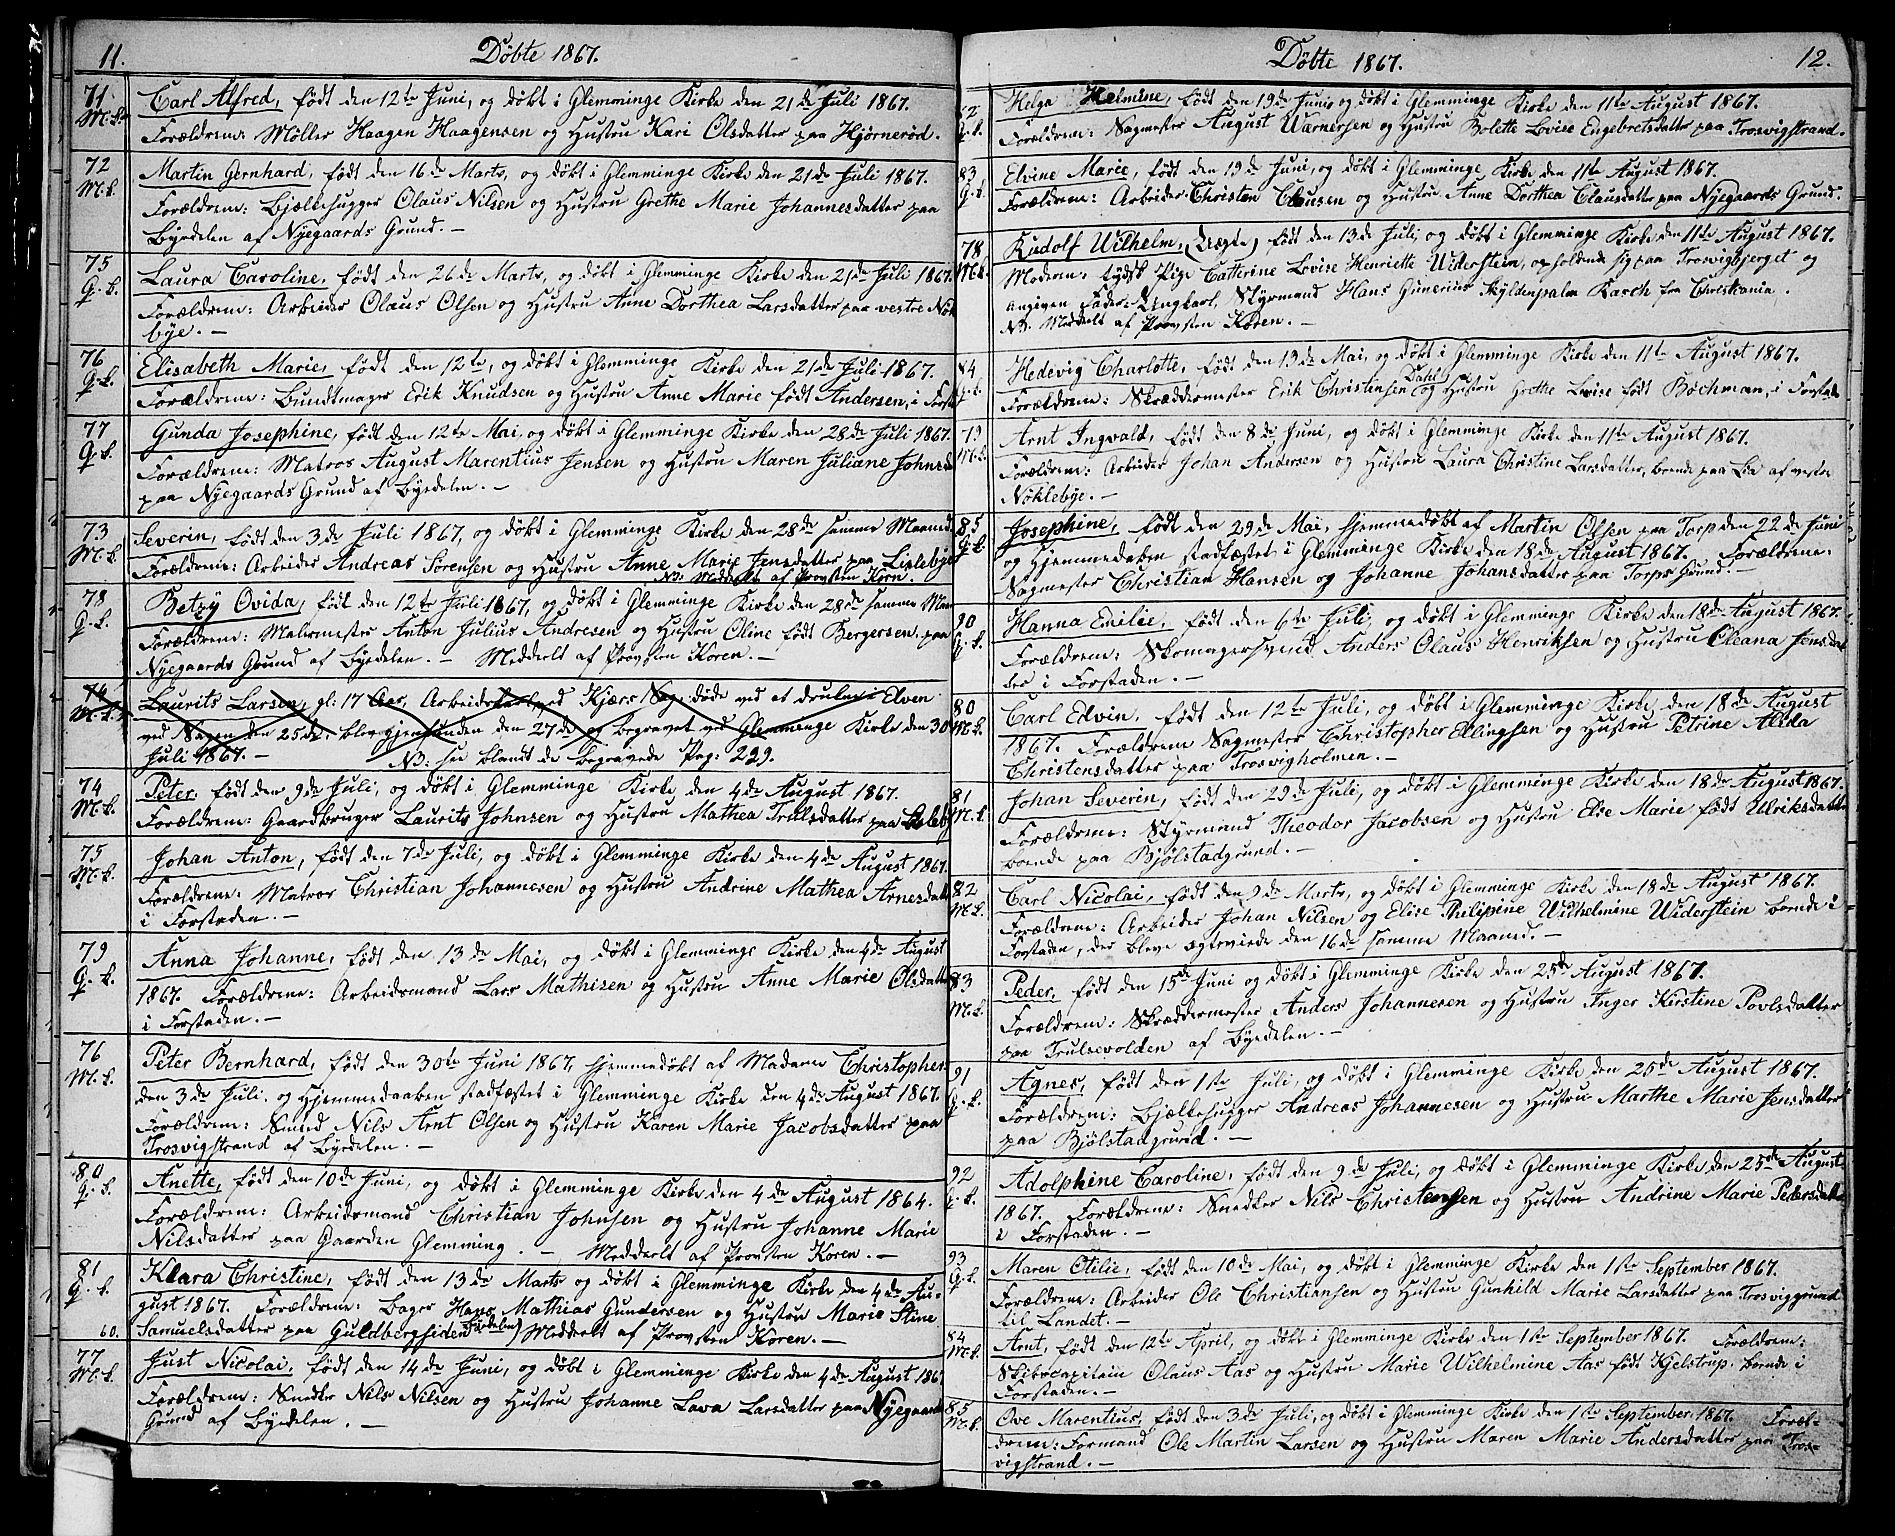 11.
Döbte 1867.
71 M.k. Carl Alfred, født den 12te Juni, og døbt i Glemminge Kirke den 21de Juli 1867.
Forældrene: Møller Haagen Haagensen og Hustru Kari Olsdatter paa Hjørnerød.
72 M.k. Martin Gernhard, født den 16de Marts, og døbt i Glemminge Kirke den 21de Juli 1867.
Forældrene: Bjælkehugger Olaus Nilsen og Hustru Grethe Marie Johannesdatter paa
Byedelen af Nyegaards Grund. —
75 Q.k. Laura Caroline, født den 26de Marts, og døbt i Glemminge Kirke den 21de Juli 1867.
Forældrene: Arbeider Olaus Olsen og Hustru Anne Dorthea Larsdatter paa vestre Nök
bÿe. —
76 Q.k. Elisabeth Marie, født den 12te, og døbt i Glemminge Kirke den 21de Juli 1867.
Forældrene: Bundtmager Erik Knudsen og Hustru Anne Marie født Andersen, i Forst
77 Q.k. Gunda Josephine, født den 12te Mai, og døbt i Glemminge Kirke den 28de Juli 1867.
Forældrene: Matros August Marentius Jensen og Hustru Maren Juliane Johnsd
paa Nyegaards Grund af Byedelen. —
73 M.k. Severin, født den 3de Juli 1867, og døbt i Glemminge Kirke den 28de samme Maaned.
Forældrene: Arbeider Andreas Sørensen og Hustru Anne Marie Jensdatter paa Lislebye
NB: Meddelt af Provsten Koren.
78 Q.k. Betzÿ Ovida, født den 12te Juli 1867, og døbt i Glemminge Kirke den 28de samme Maan
Forældrene: Malermester Anton Julius Andresen og Hustru Oline født Bergersen, paa
Nyegaards Grund af Byedelen. — Meddelt af Provsten Koren. —
74 M.k. Laurits Larsen, gl: 17 Aar, Arbeidskarl ved Kjærs Sag: døde ved at drukne i Elven
ved Sagen den 25de, blev gjenfunden den 27de og begravet ved Glemminge Kirke den 30
Juli 1867. — NB: see blandt de begravede Pag: 229.
74 M.k. Peter, født den 9de Juli, og døbt i Glemminge Kirke den 4de August 1867.
Forældrene: Gaardbruger Laurits Johnsen og Hustru Mathea Trulsdatter paa Lisleby
75 M.k. Johan Anton, født den 7de Juli, og døbt i Glemminge Kirke den 4de August 1867.
Forældrene: Matros Christian Johannesen og Hustru Andrine Mathea Arnesdatt
i Forstaden. —
79 Q.k. Anna Johanne, født den 13de Mai, og døbt i Glemminge Kirke den 4de August
1867. Forældrene: Arbeidsmand Lars Mathisen og Hustru Anne Marie Olsdatt
i Forstaden. —
76 M.k. Peter Bernhard, født den 30te Juni 1867, hjemmedøbt af Madame Christophers
den 3de Juli, og Hjemmedaaben stadfæstet i Glemminge Kirke den 4de August 1867.
Forældrene: Smed Nils Arnt Olsen og Hustru Karen Marie Jacobsdatter paa
Trosvigstrand af Byedelen. —
80 Q.k. Anette, født den 10de Juni, og døbt i Glemminge Kirke den 4de August 1864.
Forældrene: Arbeidsmand Christian Johnsen og Hustru Johanne Marie
Nilsdatter paa Gaarden Glemming. — Meddelt af Provsten Koren. —
81 Q.k. Klara Christine, født den 13de Marts og døbt i Glemminge Kirke den 4de Au-
gust 1867. Forældrene: Bager Hans Mathias Gundersen og Hustru Marie Stine
60. Samuelsdatter paa Guldbergsiden (Byedelen) Meddelt af Provsten Koren. —
77 M.k. Just Nicolai, født den 14de Juni, og døbt i Glemminge Kirke den 4de August 186
Forældrene: Snedker Nils Nilsen og Hustru Johanne Lava Larsdatter paa Nyegaards
Grund af Byedelen. —
Döbte 1867.
12.
82 Q.k. Helga Helmine, født den 19de Juni, og døbt i Glemminge Kirke den 11te August 1867.
Forældrene: Sagmester August Warnersen og Hustru Bolette Lovise Engebretsdatter paa Trosvigstrand.
83 Q.k. Elvine Marie, født den 13de Juni, og døbt i Glemminge Kirke den 11te August 1867.
Forældrene: Arbeider Christen Clausen og Hustru Anne Dorthea Clausdatter paa Nyegaards Grund.
78 M.k. Rudolf Wilhelm, (Uægte) født den 13de Juli, og døbt i Glemminge Kirke den 11te August 1867.
Moderen: tydsk Pige Catterine Lovise Henriette Widerstein, opholdende sig paa Trosvigbjerget og
angiven Fader: Ungkarl, Styrmand Hans Gunerius Skyldenpalm Rasch fra Christiania.
NB: Meddelt af Provsten Koren. —
84 Q.k. Hedevig Charlotte, født den 13de Mai, og døbt i Glemminge Kirke den 11te August 1867.
Forældrene: Skræddermester Erik Christensen Dahl og Hustru Grethe Lovise født Bochman, i Forstade
79 M.k. Arnt Ingvald, født den 8de Juni, og døbt i Glemminge Kirke den 11te August 1867.
Forældrene: Arbeider Johan Andersen og Hustru Laura Christine Larsdatter, boende paa Lia af vestre
Nöklebye. —
85 Q.k. Josephine, født den 29de Mai, hjemmedøbt af Martin Olsen paa Torp den 22de Juni
og Hjemmedaaben stadfæstet i Glemminge Kirke den 18de August 1867. Forældrene:
Sagmester Christian Hansen og Johanne Johansdatter paa Torps Grund. —
90 Q.k. Hanna Emilie, født den 6te Juli, og døbt i Glemminge Kirke den 18de August 1867.
Forældrene: Skomagersvend Anders Olaus Henriksen og Hustru Oleana Jensdat
ter i Forstaden. —
80 M.k. Carl Edvin, født den 12te Juli, og døbt i Glemminge Kirke, den 18de August
1867. Forældrene Sagmester Christopher Ellingsen og Hustru Petrine Alida
Christensdatter paa Trosvigholmen. —
81 M.k. Johan Severin, født den 29de Juli, og døbt i Glemminge Kirke den 18de August 1867.
Forældrene: Styrmand Theodor Jacobsen og Hustru Else Marie født Ulriksdatter
boende paa Bjølstadgrund. —
82 M.k. Carl Nicolai, født den 9de Marts, og døbt i Glemminge Kirke den 18de August 1867.
Forældrene: Arbeider Johan Nilsen og Elise Philipine Wilhelmine Widerstein boende i
Forstaden, der bleve ægteviede den 16de samme Maaned. —
83 M.k. Peder, født den 15de Juni og døbt i Glemminge Kirke den 25de August 1867.
Forældrene: Skræddermester Anders Johannesen og Hustru Inger Kirstine Povlsdatter
paa Trulsevolden af Byedelen. —
91 Q.k. Agnes, født den 1ste Juli, og døbt i Glemminge Kirke den 25de August 1867.
Forældrene: Bjælkehugger Andreas Johannesen og Hustru Marthe Marie Jensdatter
paa Bjølstadgrund. —
92 Q.k. Adolphine Caroline, født den 9de Juli, og døbt i Glemminge Kirke den 25de August
1867. Forældrene: Snedker Nils Christensen og Hustru Andrine Marie Pedersdatte
i Forstaden. —
93 Q.k. Maren Otilie, født den 10de Mai, og døbt i Glemminge Kirke den 1ste September 1867.
Forældrene: Arbeider Ole Christiansen og Hustru Gunhild Marie Larsdatter paa Trosviggrund
til Landet. —
84 M.k. Arnt, født den 12te April, og døbt i Glemminge Kirke den 1ste September 1867. Forældrene:
Skibscapitain Olaus Aas og Hustru Marie Wilhelmine Aas født Kjelstrup, boende i
Forstaden. —
85 M.k. Ove Marentius, født den 3de Juli, og døbt i Glemminge Kirke den 1ste September 1867. Foræl-
drene: Formand Ole Martin Larsen og Hustru Maren Marie Andersdatter paa Tros-
vigstrand. —